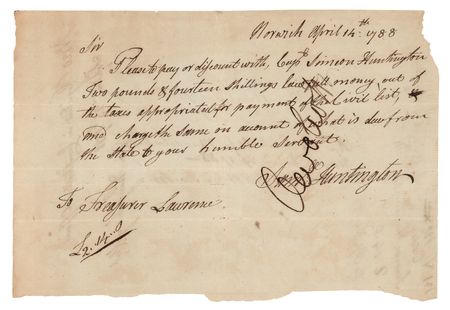 Norwich April 14th. 1788
Sir
Please to pay or discount with, Capt. Simeon Huntington
Two pounds & fourteen Shillings lawfull money out of
the taxes appropriated for payment of the Civil list, &
and charge the same on account of what is due from
the State to your humble Servant.
Huntington
To Treasurer Lawrence
£2.14.0